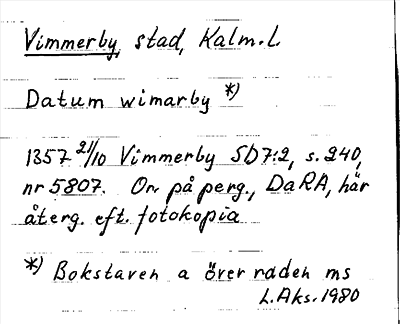 Vimmerby, stad, Kalm.L.
Datum wimarby *)
1357 21/10 Vimmerby SD7:2, s. 240,
nr 5807. Or. på perg., DaRA, här
återg. eft. fotokopia
*) Bokstaven a över raden ms
L.Aks. 1980